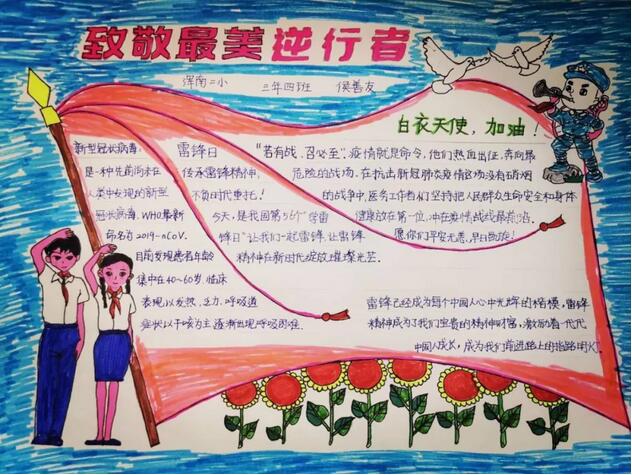 致敬最美逆行者
浑南二小 三年四班 侯善友
白衣天使，加油！
新型冠状病毒，
是一种先前尚未在
人类中发现的新型
冠状病毒，WHO最新
命名为2019-nCoV.
目前发现患者年龄
集中在40~60岁，临床
表现以发热、乏力、呼吸道
症状以干咳为主，逐渐出现呼吸困难.
雷锋日
传承雷锋精神，
不负时代重托！
今天，是我国第56个"学雷
锋日"让我们一起雷锋，让雷锋
精神在新时代绽放璀璨光芒.
"若有战，召必至"，疫情就是命令，他们热血出征，奔向最
危险的战场，在抗击新冠肺炎疫情这场没有硝烟
的战争中，医务工作者们坚持把人民群众生命安全和身体
健康放在第一位，冲在疫情战线最前沿.
愿你们平安无恙，早日凯旋！
雷锋已经成为每个中国人心中光辉的楷模，雷锋
精神成为了我们宝贵的精神财富，激励着一代代
中国人成长，成为我们前进路上的指路明灯.